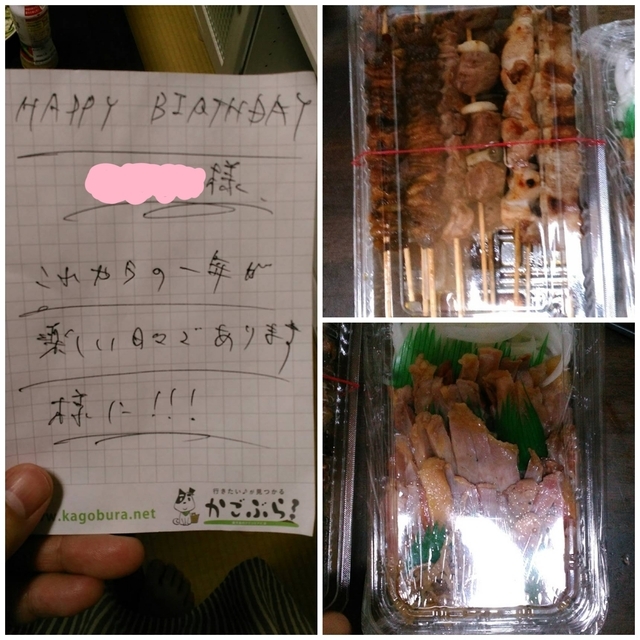 HAPPY BIRTHDAY
様
これからの一年が
楽しい日々であります
様に!!!
w.kagobura.net
行きたい♪が見つかる
かごぶら!